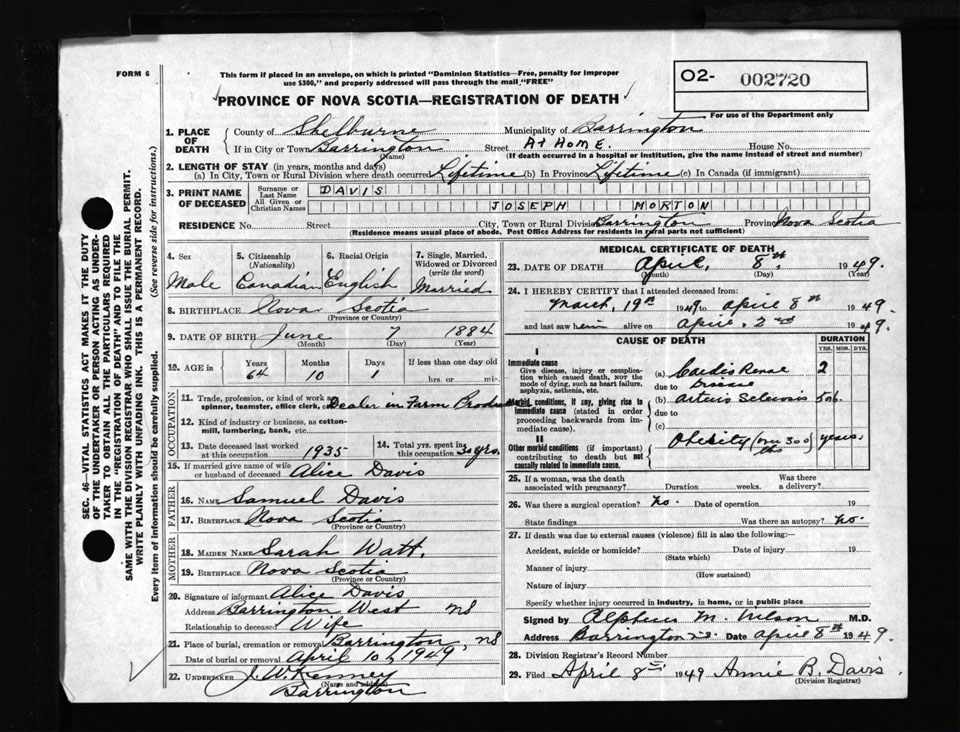 FORM 6
This form if placed in an envelope, on which is printed "Dominion Statistics—Free, penalty for improper
use $300," and properly addressed will pass through the mail "FREE"
O2- 002720
PROVINCE OF NOVA SCOTIA—REGISTRATION OF DEATH
For use of the Department only
1. PLACE OF DEATH County of Shelburne Municipality of Barrington
If in City or Town Barrington (Name) Street At Home. House No.
(If death occurred in a hospital or institution, give the name instead of street and number)
2. LENGTH OF STAY (in years, months and days)
(a) In City, Town or Rural Division where death occurred Lifetime (b) In Province Lifetime (c) In Canada (if immigrant)
3. PRINT NAME OF DECEASED Surname or Last Name DAVIS
All Given or Christian Names JOSEPH MORTON
RESIDENCE No. Street City, Town or Rural Division Barrington Province Nova Scotia
(Residence means usual place of abode. Post Office Address for residents in rural parts not sufficient)
4. Sex 5. Citizenship (Nationality) 6. Racial Origin 7. Single, Married, Widowed or Divorced (write the word)
Male Canadian English Married
8. BIRTHPLACE Nova Scotia
(Province or Country)
9. DATE OF BIRTH June 7 1884
(Month) (Day) (Year)
10. AGE in Years Months Days If less than one day old
64 10 1 hrs. or min.
OCCUPATION
11. Trade, profession, or kind of work as
spinner, teamster, office clerk, etc. Dealer in Farm Produce
12. Kind of industry or business, as cotton-
mill, lumbering, bank, etc.
13. Date deceased last worked at this occupation 1935 14. Total yrs. spent in this occupation 30 yrs.
15. If married give name of wife
or husband of deceased Alice Davis
FATHER
16. NAME Samuel Davis
17. BIRTHPLACE Nova Scotia
(Province or Country)
MOTHER
18. MAIDEN NAME Sarah Watt.
19. BIRTHPLACE Nova Scotia
(Province or Country)
20. Signature of informant Alice Davis
Address Barrington West NS
Relationship to deceased Wife
21. Place of burial, cremation or removal Barrington, NS
Date of burial or removal April 10th, 1949,
22. UNDERTAKER J. W. Kenney
(Name and address)
Barrington
MEDICAL CERTIFICATE OF DEATH
23. DATE OF DEATH April, 8th, 1949.
(Month) (Day) (Year)
24. I HEREBY CERTIFY that I attended deceased from:
March, 19th 1949 to April 8th 1949
and last saw him alive on April, 2nd 1949.
CAUSE OF DEATH DURATION
YRS. MOS. DYS.
I
Immediate cause
Give disease, injury or complica-
tion which caused death, not the
mode of dying, such as heart failure,
asphyxia, asthenia, etc.
(a) Cardio Renal 2
due to disease
Morbid conditions, if any, giving rise to
immediate cause (stated in order
proceeding backwards from im-
mediate cause).
(b) Arterio Sclerosis
due to
(c)
II
Other morbid conditions (if important)
contributing to death but not
causally related to immediate cause.
Obesity (over 300 lbs years.
25. If a woman, was the death Was there
associated with pregnancy? Duration weeks. a delivery?
26. Was there a surgical operation? no. Date of operation 19
State findings Was there an autopsy? no.
27. If death was due to external causes (violence) fill in also the following:
Accident, suicide or homicide? Date of injury 19
(State which)
Manner of injury
(How sustained)
Nature of injury
Specify whether injury occurred in industry, in home, or in public place
Signed by Alpheus M. Wilson M.D.
Address Barrington N.S. Date April 8th 1949.
28. Division Registrar's Record Number
29. Filed April 8th 1949 Annie B. Davis
(Division Registrar)
SEC. 46—VITAL STATISTICS ACT MAKES IT THE DUTY
OF THE UNDERTAKER OR PERSON ACTING AS UNDER-
TAKER TO OBTAIN ALL THE PARTICULARS REQUIRED
IN THE "REGISTRATION OF DEATH" AND TO FILE THE
SAME WITH THE DIVISION REGISTRAR WHO SHALL ISSUE THE BURIAL PERMIT.
WRITE PLAINLY WITH UNFADING INK. THIS IS A PERMANENT RECORD.
Every item of information should be carefully supplied. (See reverse side for instructions.)